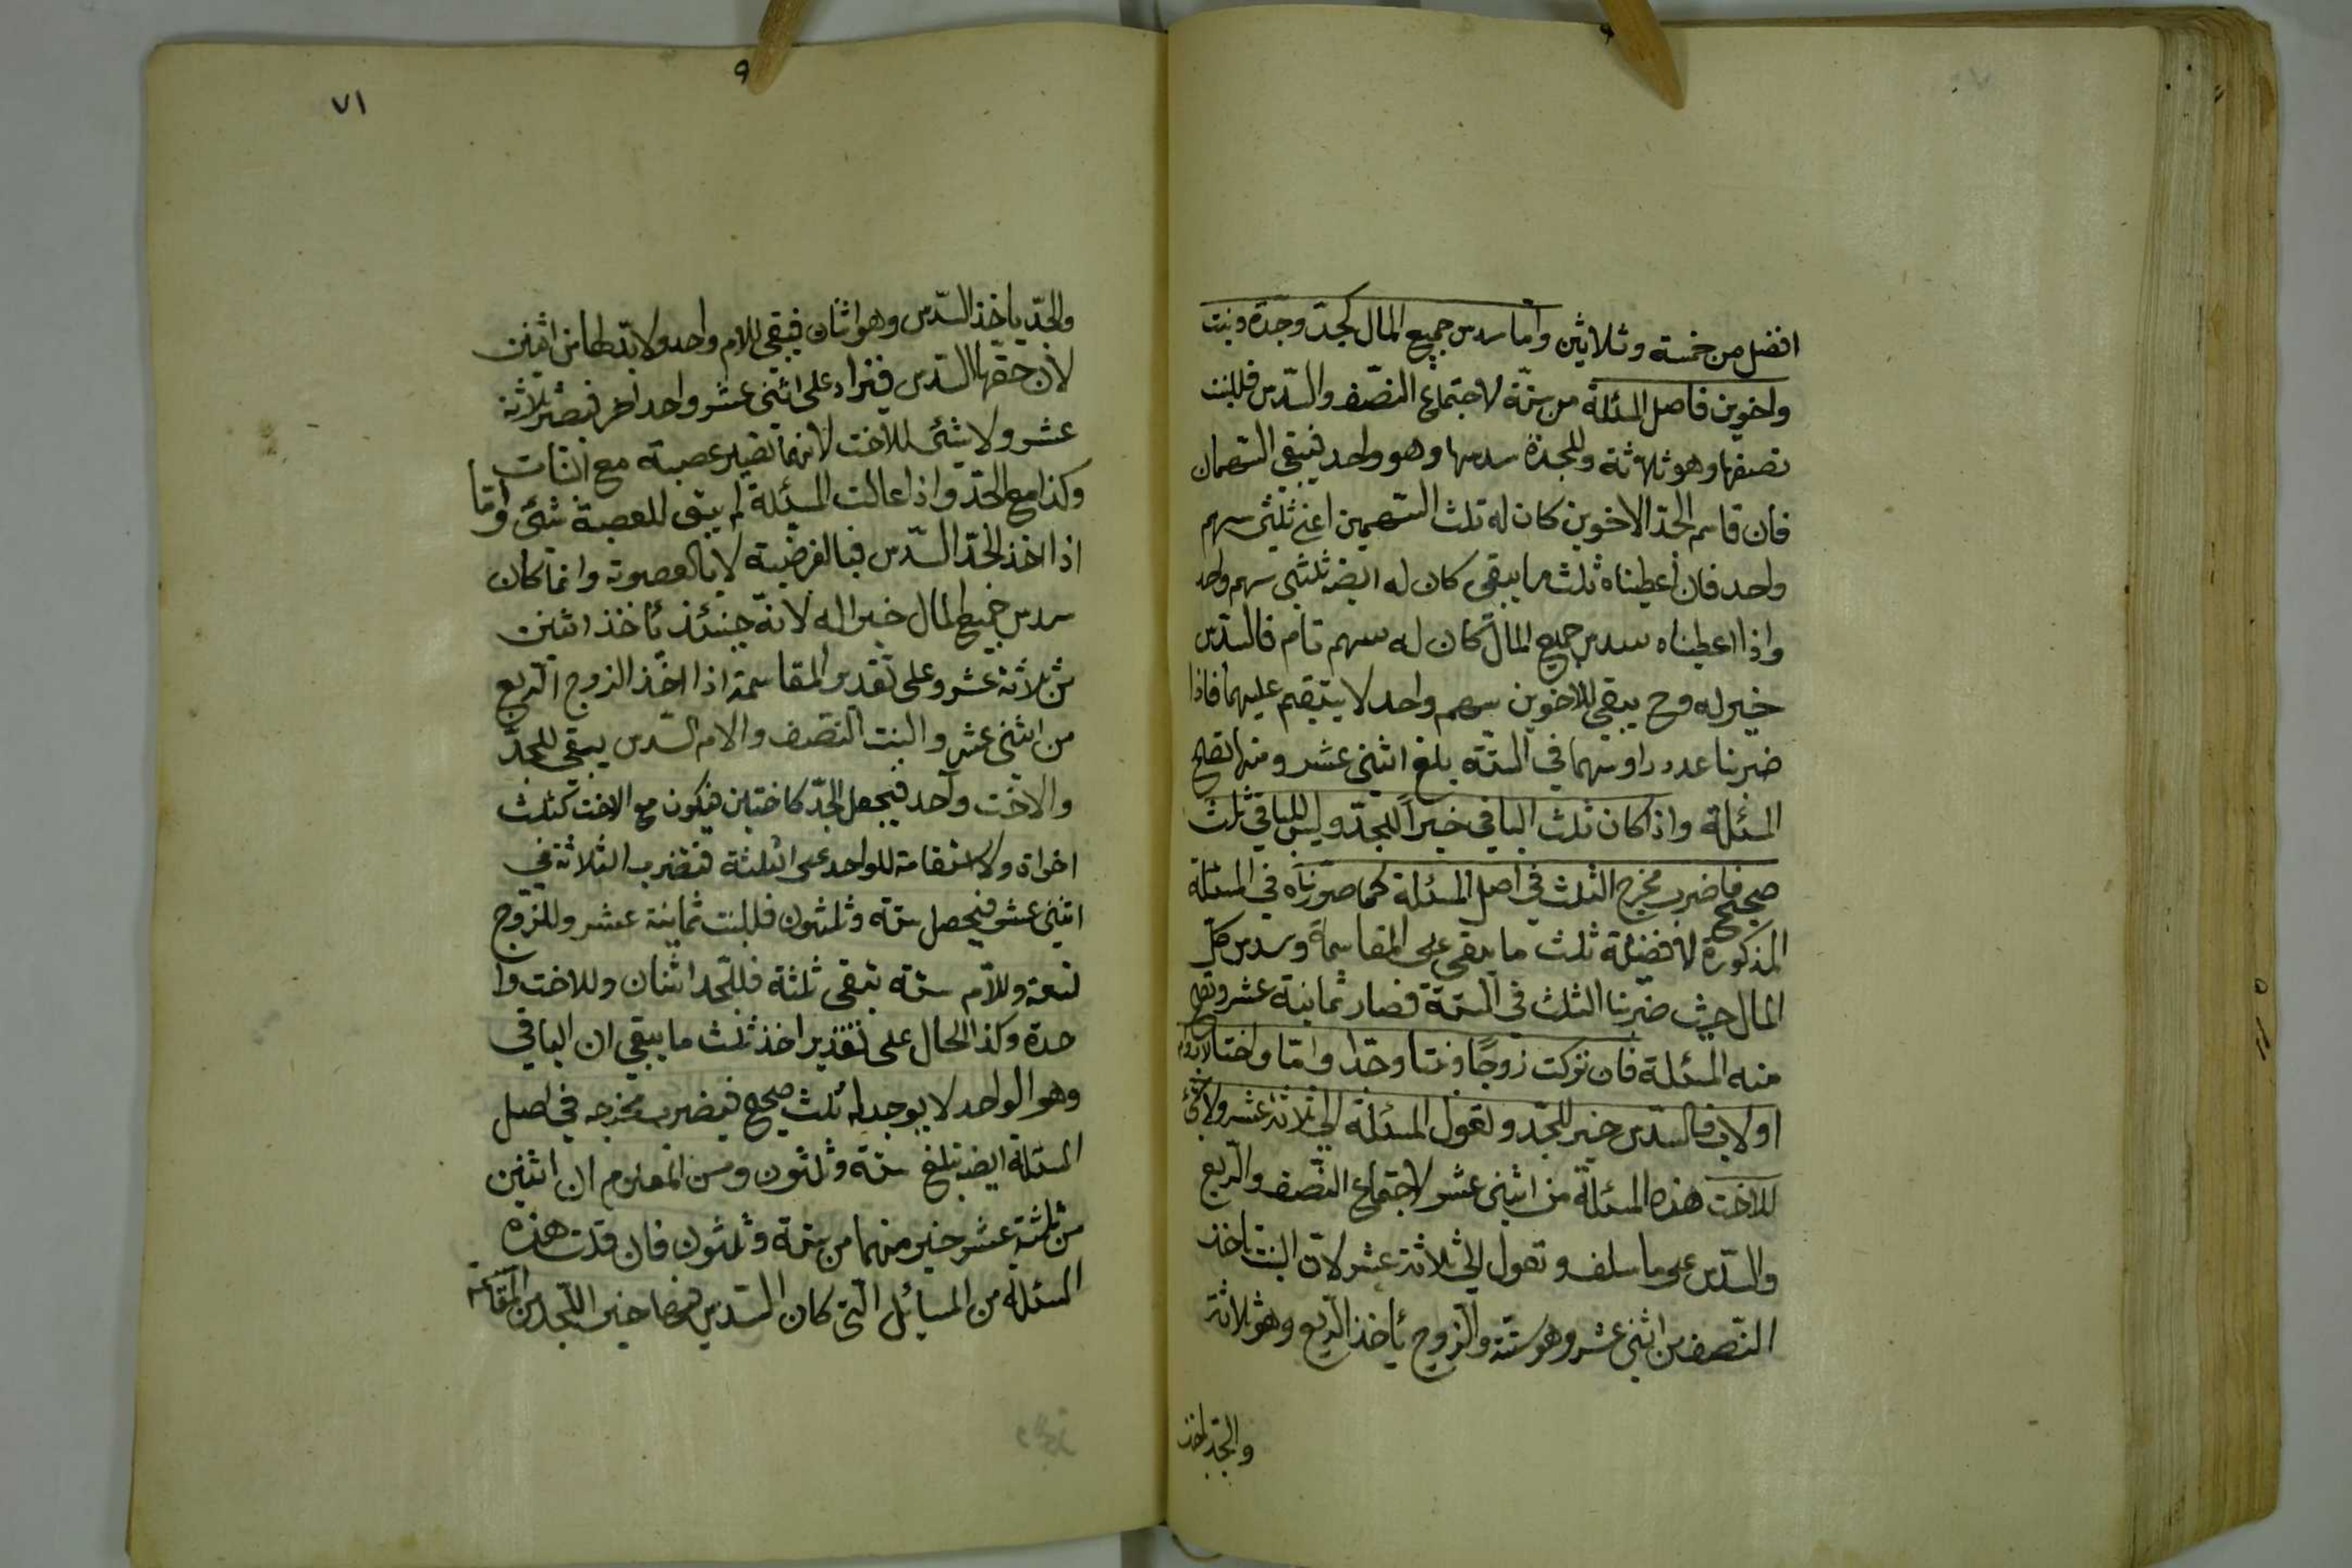 افضل من خمسة وثلاثين وأما سدس جميع المال كجدّ وجدّة وبنت
واخوين فاصل المسئلة من ستّة لاجتماع النصّف والسّدس فللبنت
نصفها وهو ثلاثة وللجدّة سدسها وهو واحد فيبقى السّهمان
فان قاسم الجدّ الاخوين كان له ثلث السّهمين اعنى ثلثى سهم
واحد فان أعطيناه ثلث ما يبقى كان له ايضه ثلثى سهم واحد
واذا اعطيناه سدس جميع المال كان له سهم تام فالسّدس
خير له وح يبقى للاخوين سهم واحد لا يتقيم عليهما فاذا
ضربنا عدد راوسهما في السّتّة بلغ اثنى عشر ومنها تصح
المسئلة واذا كان ثلث الباقى خيراً للجدّ وليس للباقى ثلث
صحيح فاضرب مخرج الثلث في اصل المسئلة كما صوّرناه في المسئلة
المذكورة لافضيلة ثلث ما يبقى على المقاسمة وسدس كلّ
المال حيث ضربنا الثلث في الستّة فصار ثمانية عشر وتصح
منه المسئلة فان تركت زوجًا وبنتا وجدّا وامّا واختا لاب وام
او لاب فالسّدس خير للجدّ وتعول المسئلة الى ثلاثة عشر ولا شئ
للاخت هذه المسئلة من اثنى عشر لاجتماع النّصف والرّبع
والسّدس على ما سلف وتعول الى ثلاثة عشر لانّ البنت تاخذ
النّصف من اثنى عشر وهو ستّة والزوج يأخذ الرّبع وهو ثلاثة
والجدّ ياخذ
٧١
والجدّ ياخذ السّدس وهو اثنان فيبقى للام واحد ولا بدّ لها من اثنين
لان حقّها السّدس فيزاد على اثنى عشر واحد اخر فيصير ثلاثة
عشر ولا شئ للاخت لانها تصير عصبة مع البنات
وكذا مع الجدّ واذا عالت المسئلة لم يبق للعصبة شئ وامّا
اذا اخذ الجدّ السّدس فبالفرضيّة لا بالعصوبة وانما كان
سدس جميع المال خيرا له لانّه حينئذ يأخذ اثنين
من ثلاثة عشر وعلى تقدير المقاسمة اذا اخذ الزوج الرّبع
من اثنى عشر والبنت النّصف والام السّدس يبقى للجدّ
والاخت واحد فيجعل الجدّ كاختين فيكون مع الاخت كثلث
اخواة ولا استقامة للواحد على الثلثة فتضرب الثلاثة في
اثنى عشر فيحصل ستّة وثلثون فللبنت ثمانية عشر وللزوج
تسعة وللأم ستّة تبقى ثلثة فللجّد اثنان وللاخت وا
حدة وكذا الحال على تقدير اخذ ثلث ما يبقى ان الباقى
وهو الواحد لا يوجد له ثلث صحيح فيضرب مخرجه في اصل
المسئلة ايضه تبلغ ستّة وثلثون ومن المعلوم ان اثنين
من ثلثة عشر خير منهما من ستّة وثلثون فان قلت هذه
المسئلة من المسائل الّتى كان السّدس فيها خير للجّد من المقاسمة